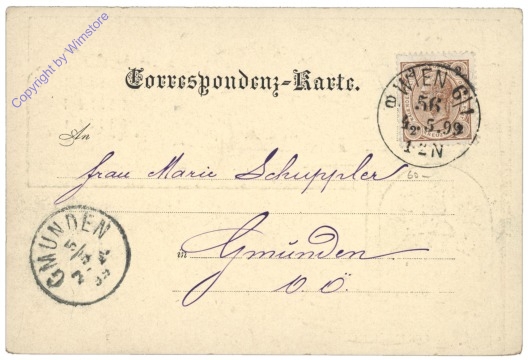 Copyright by Wimstore
Correspondenz-Karte.
WIEN 6/1
56
5.99
1-2N
An
Frau Marie Schuppler
60-
in Gmünden
O. Ö.
GMUNDEN